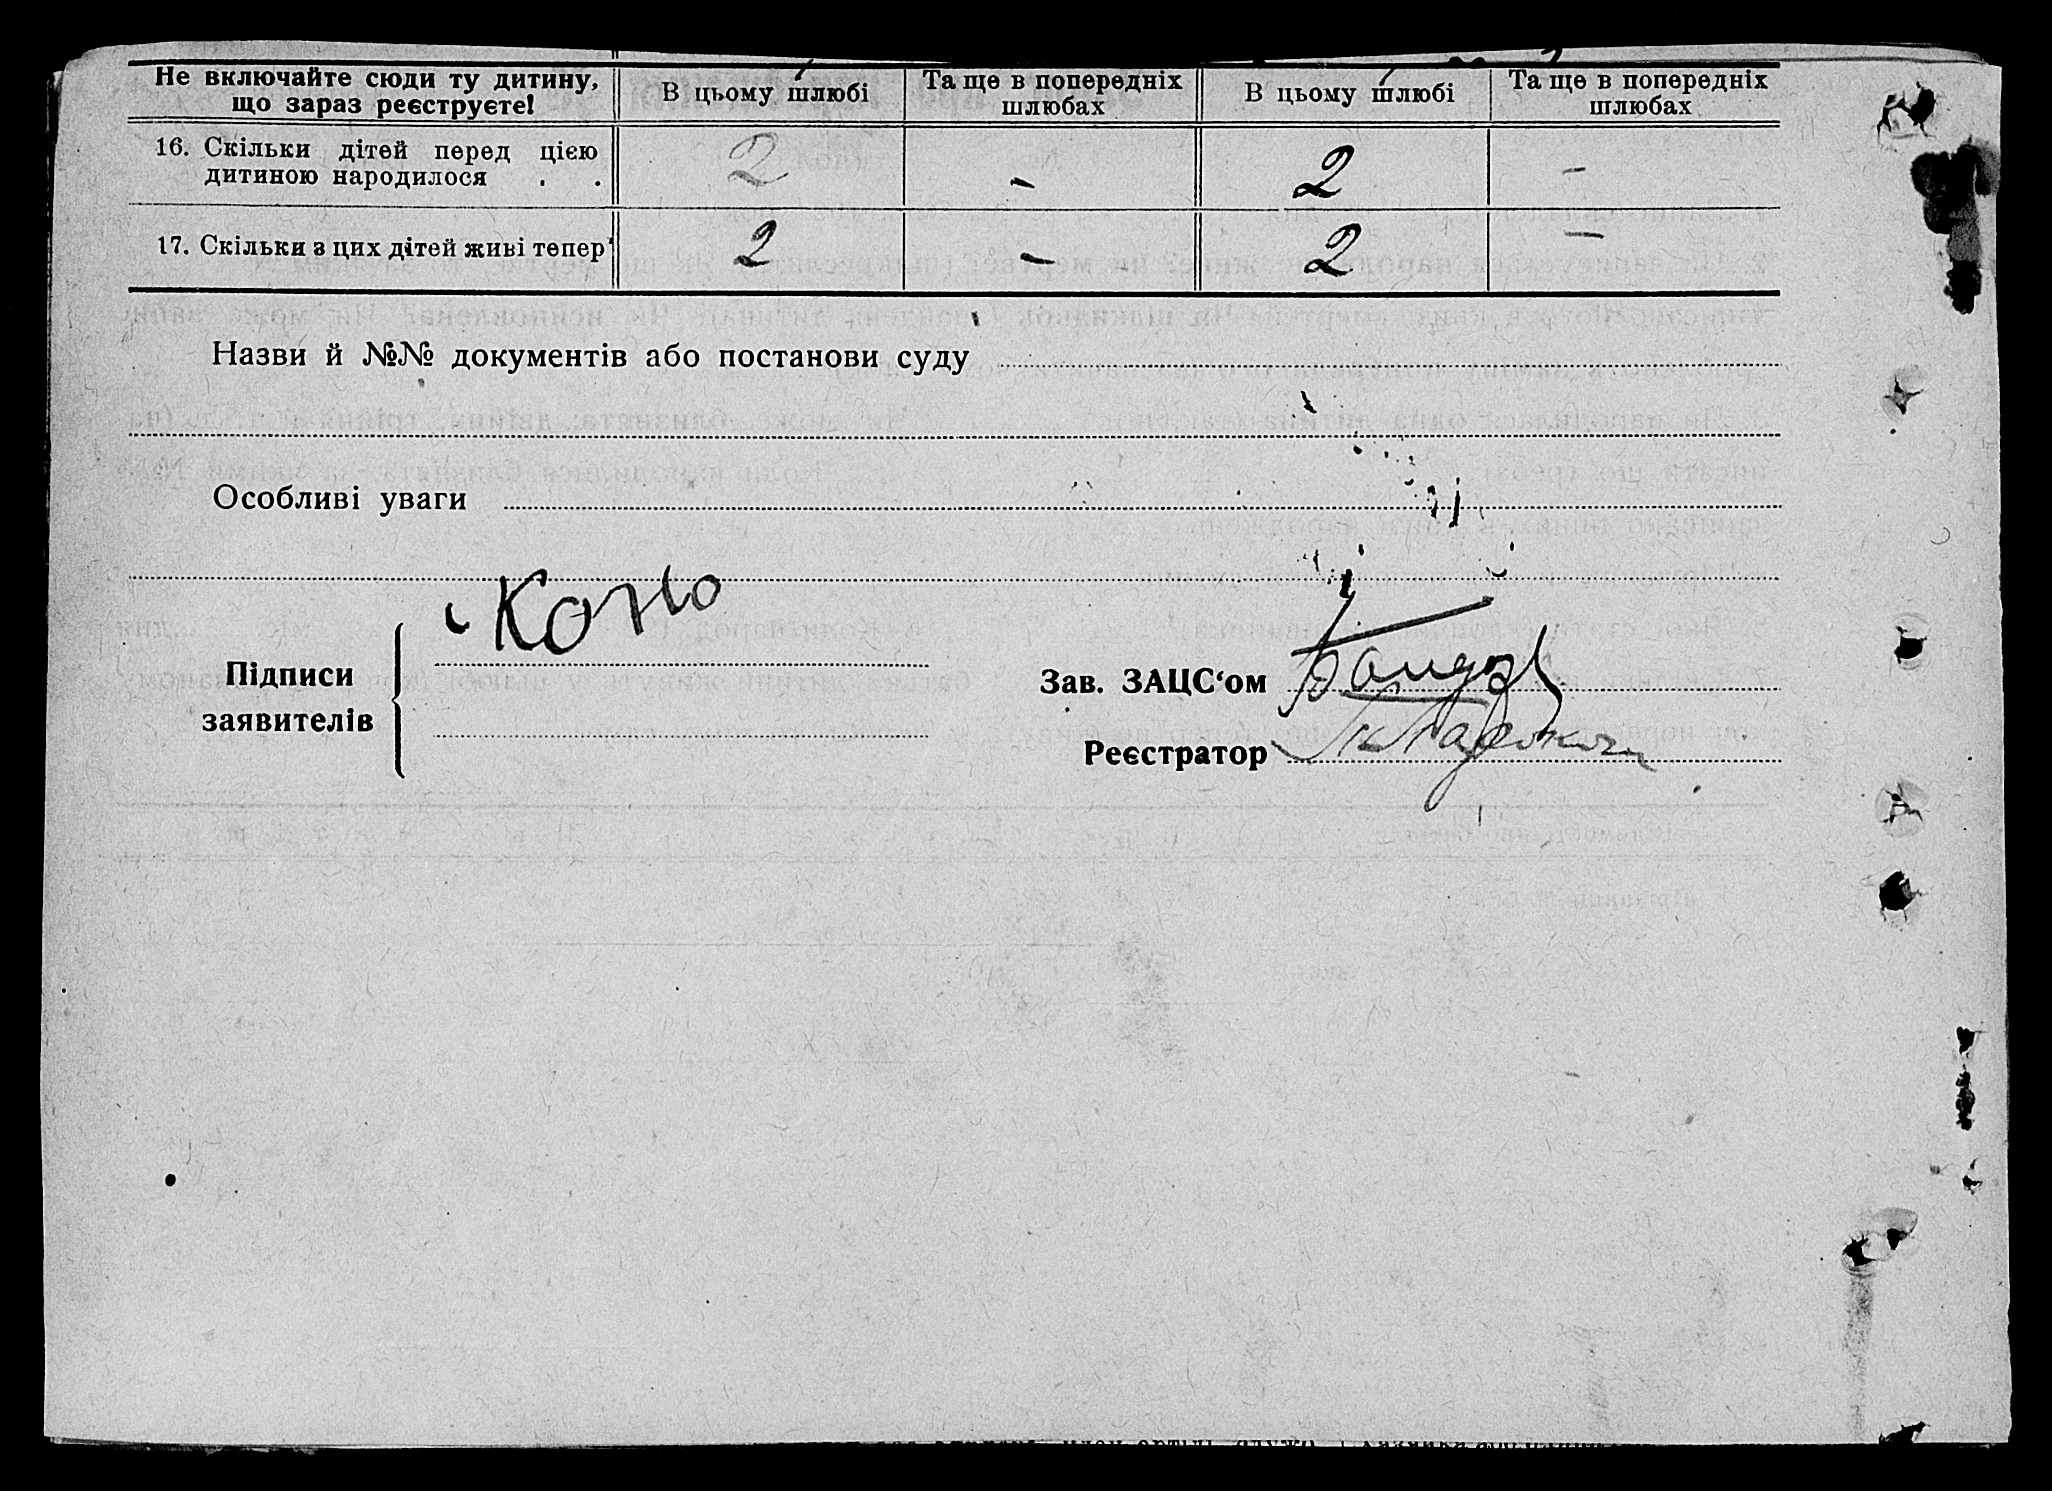 Не включайте сюди ту дитину, що зараз реєструєте!
В цьому шлюбі
Та ще в попередніх шлюбах
В цьому шлюбі
Та ще в попередніх шлюбах
16. Скільки дітей перед цією
дитиною народилося . .
2 - 2 -
17. Скільки з цих дітей живі тепер
2 - 2 -
Назви й №№ документів або постанови суду
Особливі уваги
Підписи
заявителів
Зав. ЗАЦС‘ом
Реєстратор